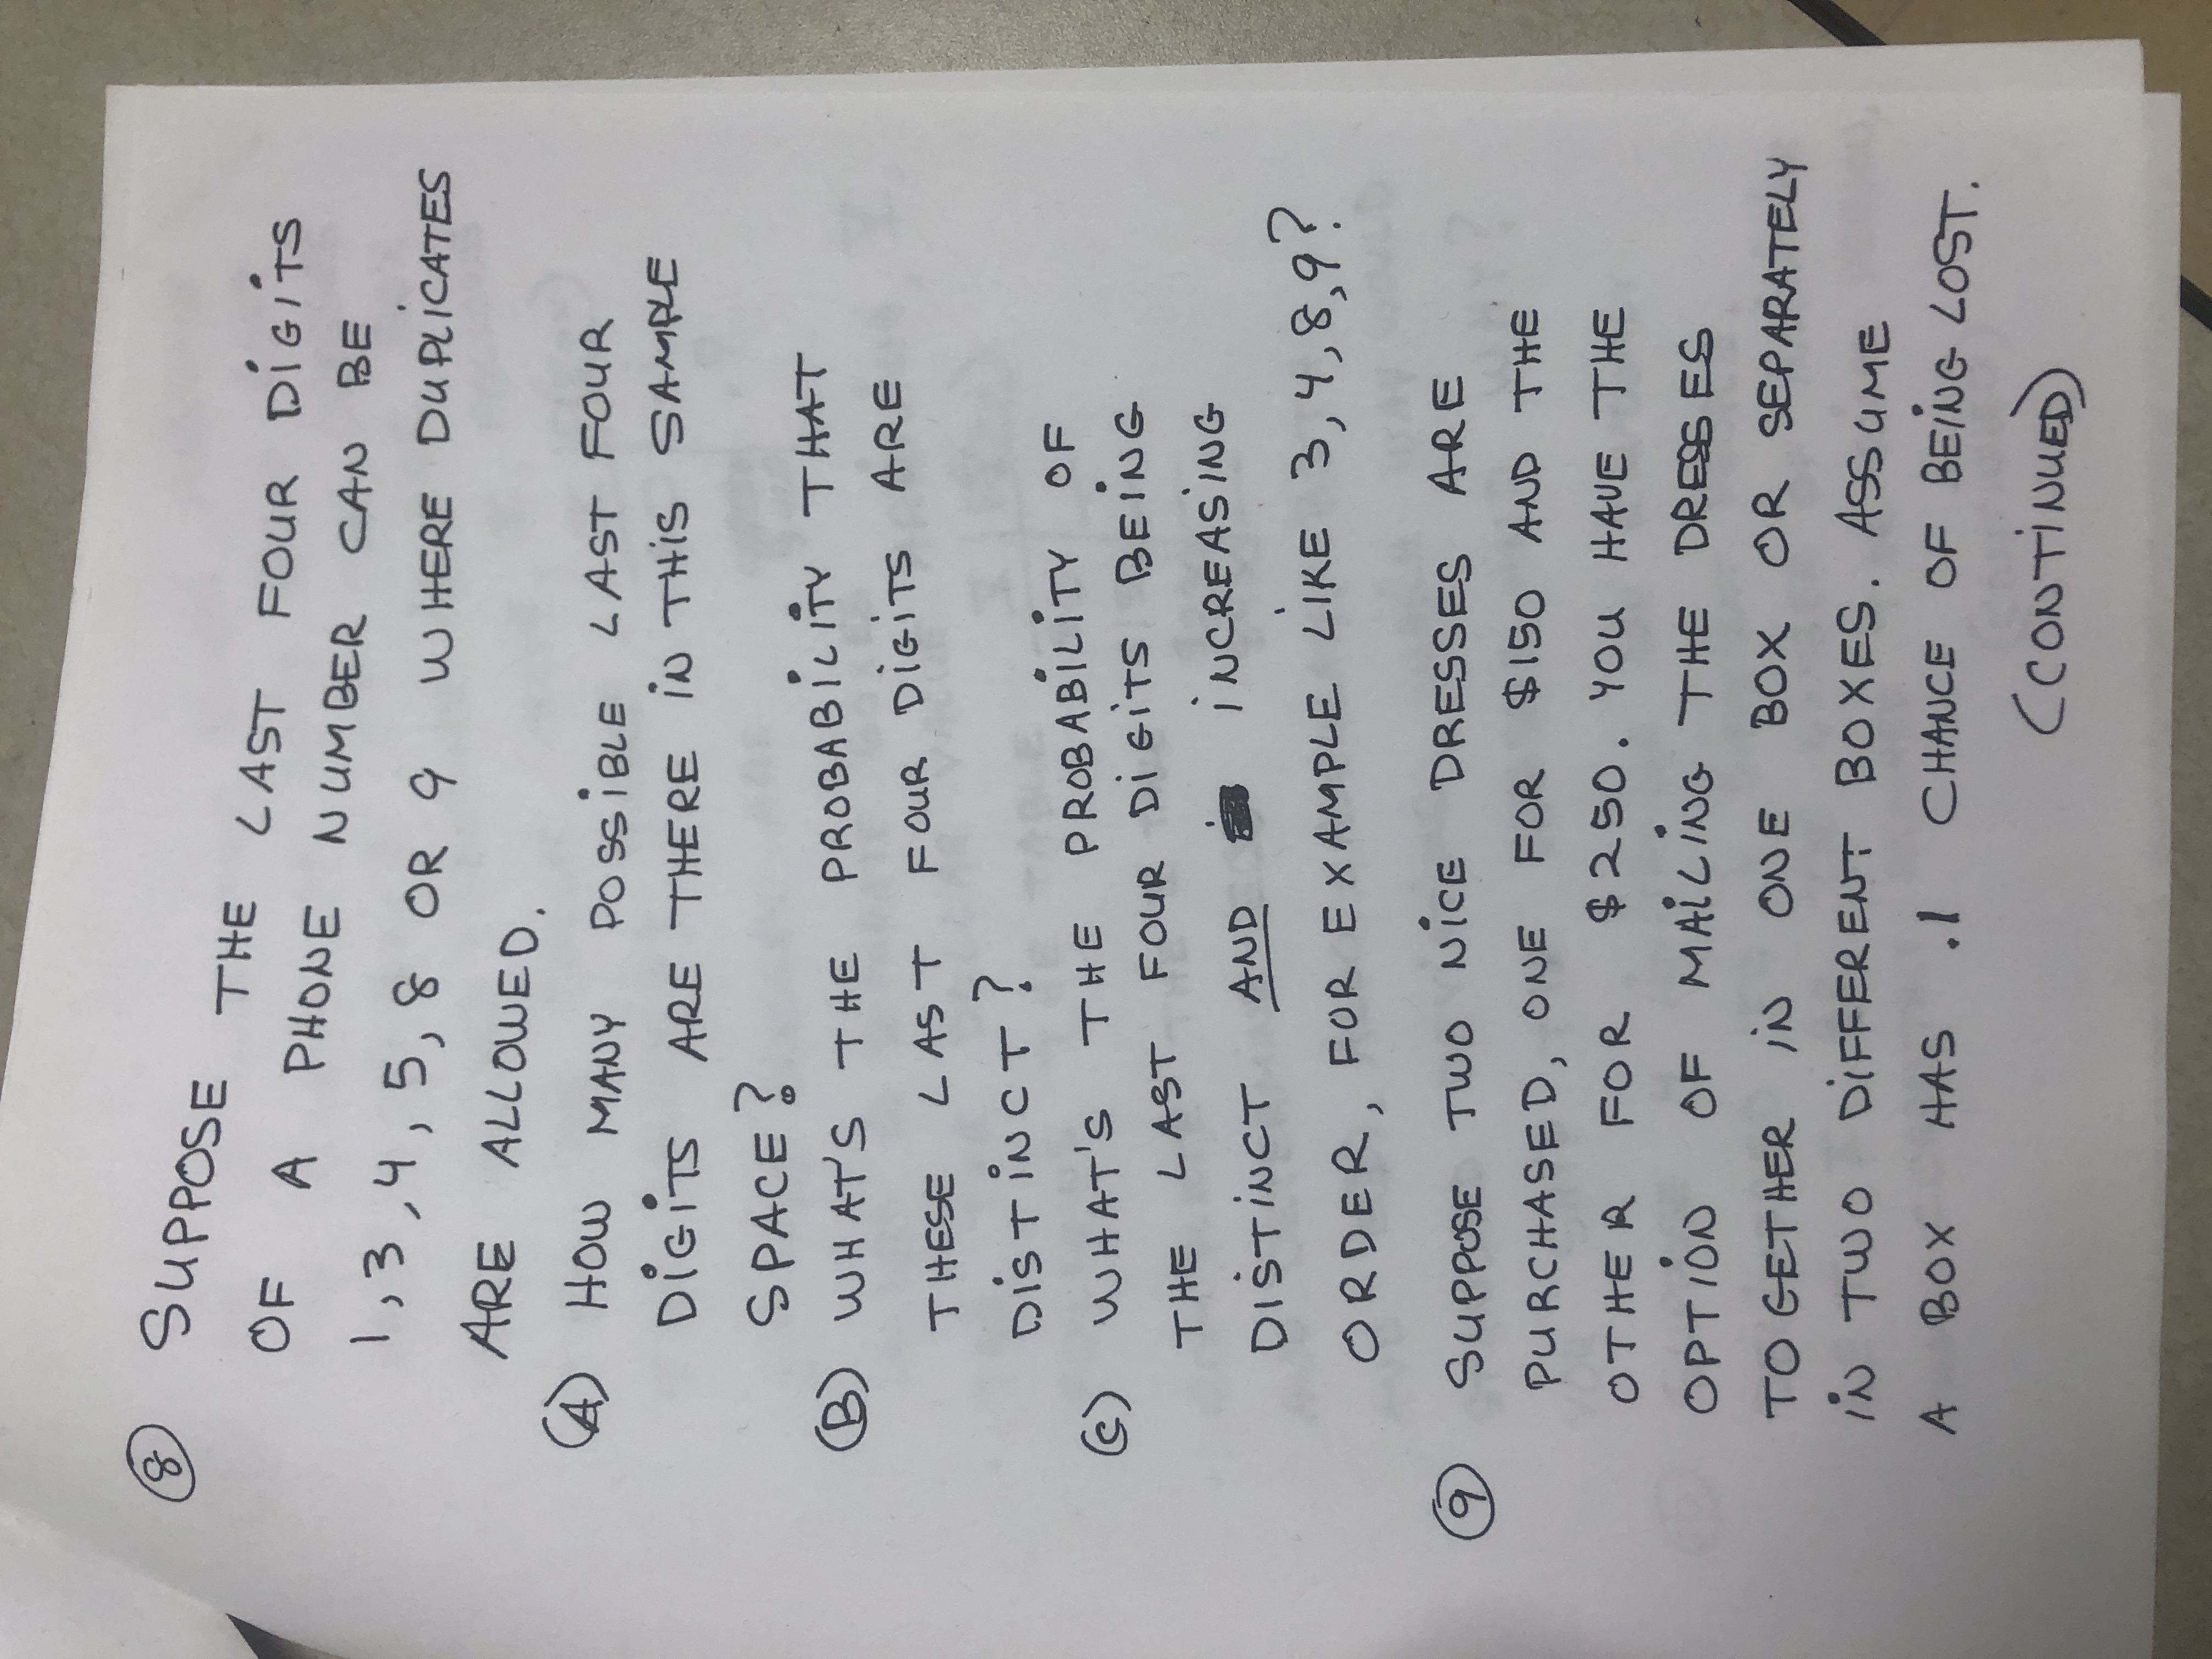 (8) SUPPOSE THE LAST FOUR DIGITS
OF A PHONE NUMBER CAN BE
1, 3, 4, 5, 8 OR 9 WHERE DUPLICATES
ARE ALLOWED.
(A) HOW MANY POSSIBLE LAST FOUR
DIGITS ARE THERE IN THIS SAMPLE
SPACE?
(B) WHAT'S THE PROBABILITY THAT
THESE LAST FOUR DIGITS ARE
DISTINCT?
(C) WHAT'S THE PROBABILITY OF
THE LAST FOUR DIGITS BEING
DISTINCT AND INCREASING
ORDER, FOR EXAMPLE LIKE 3, 4, 8, 9?
(9) SUPPOSE TWO NICE DRESSES ARE
PURCHASED, ONE FOR $150 AND THE
OTHER FOR $250. YOU HAVE THE
OPTION OF MAILING THE DRESSES
TOGETHER IN ONE BOX OR SEPARATELY
IN TWO DIFFERENT BOXES. ASSUME
A BOX HAS .1 CHANCE OF BEING LOST.
(CONTINUED)